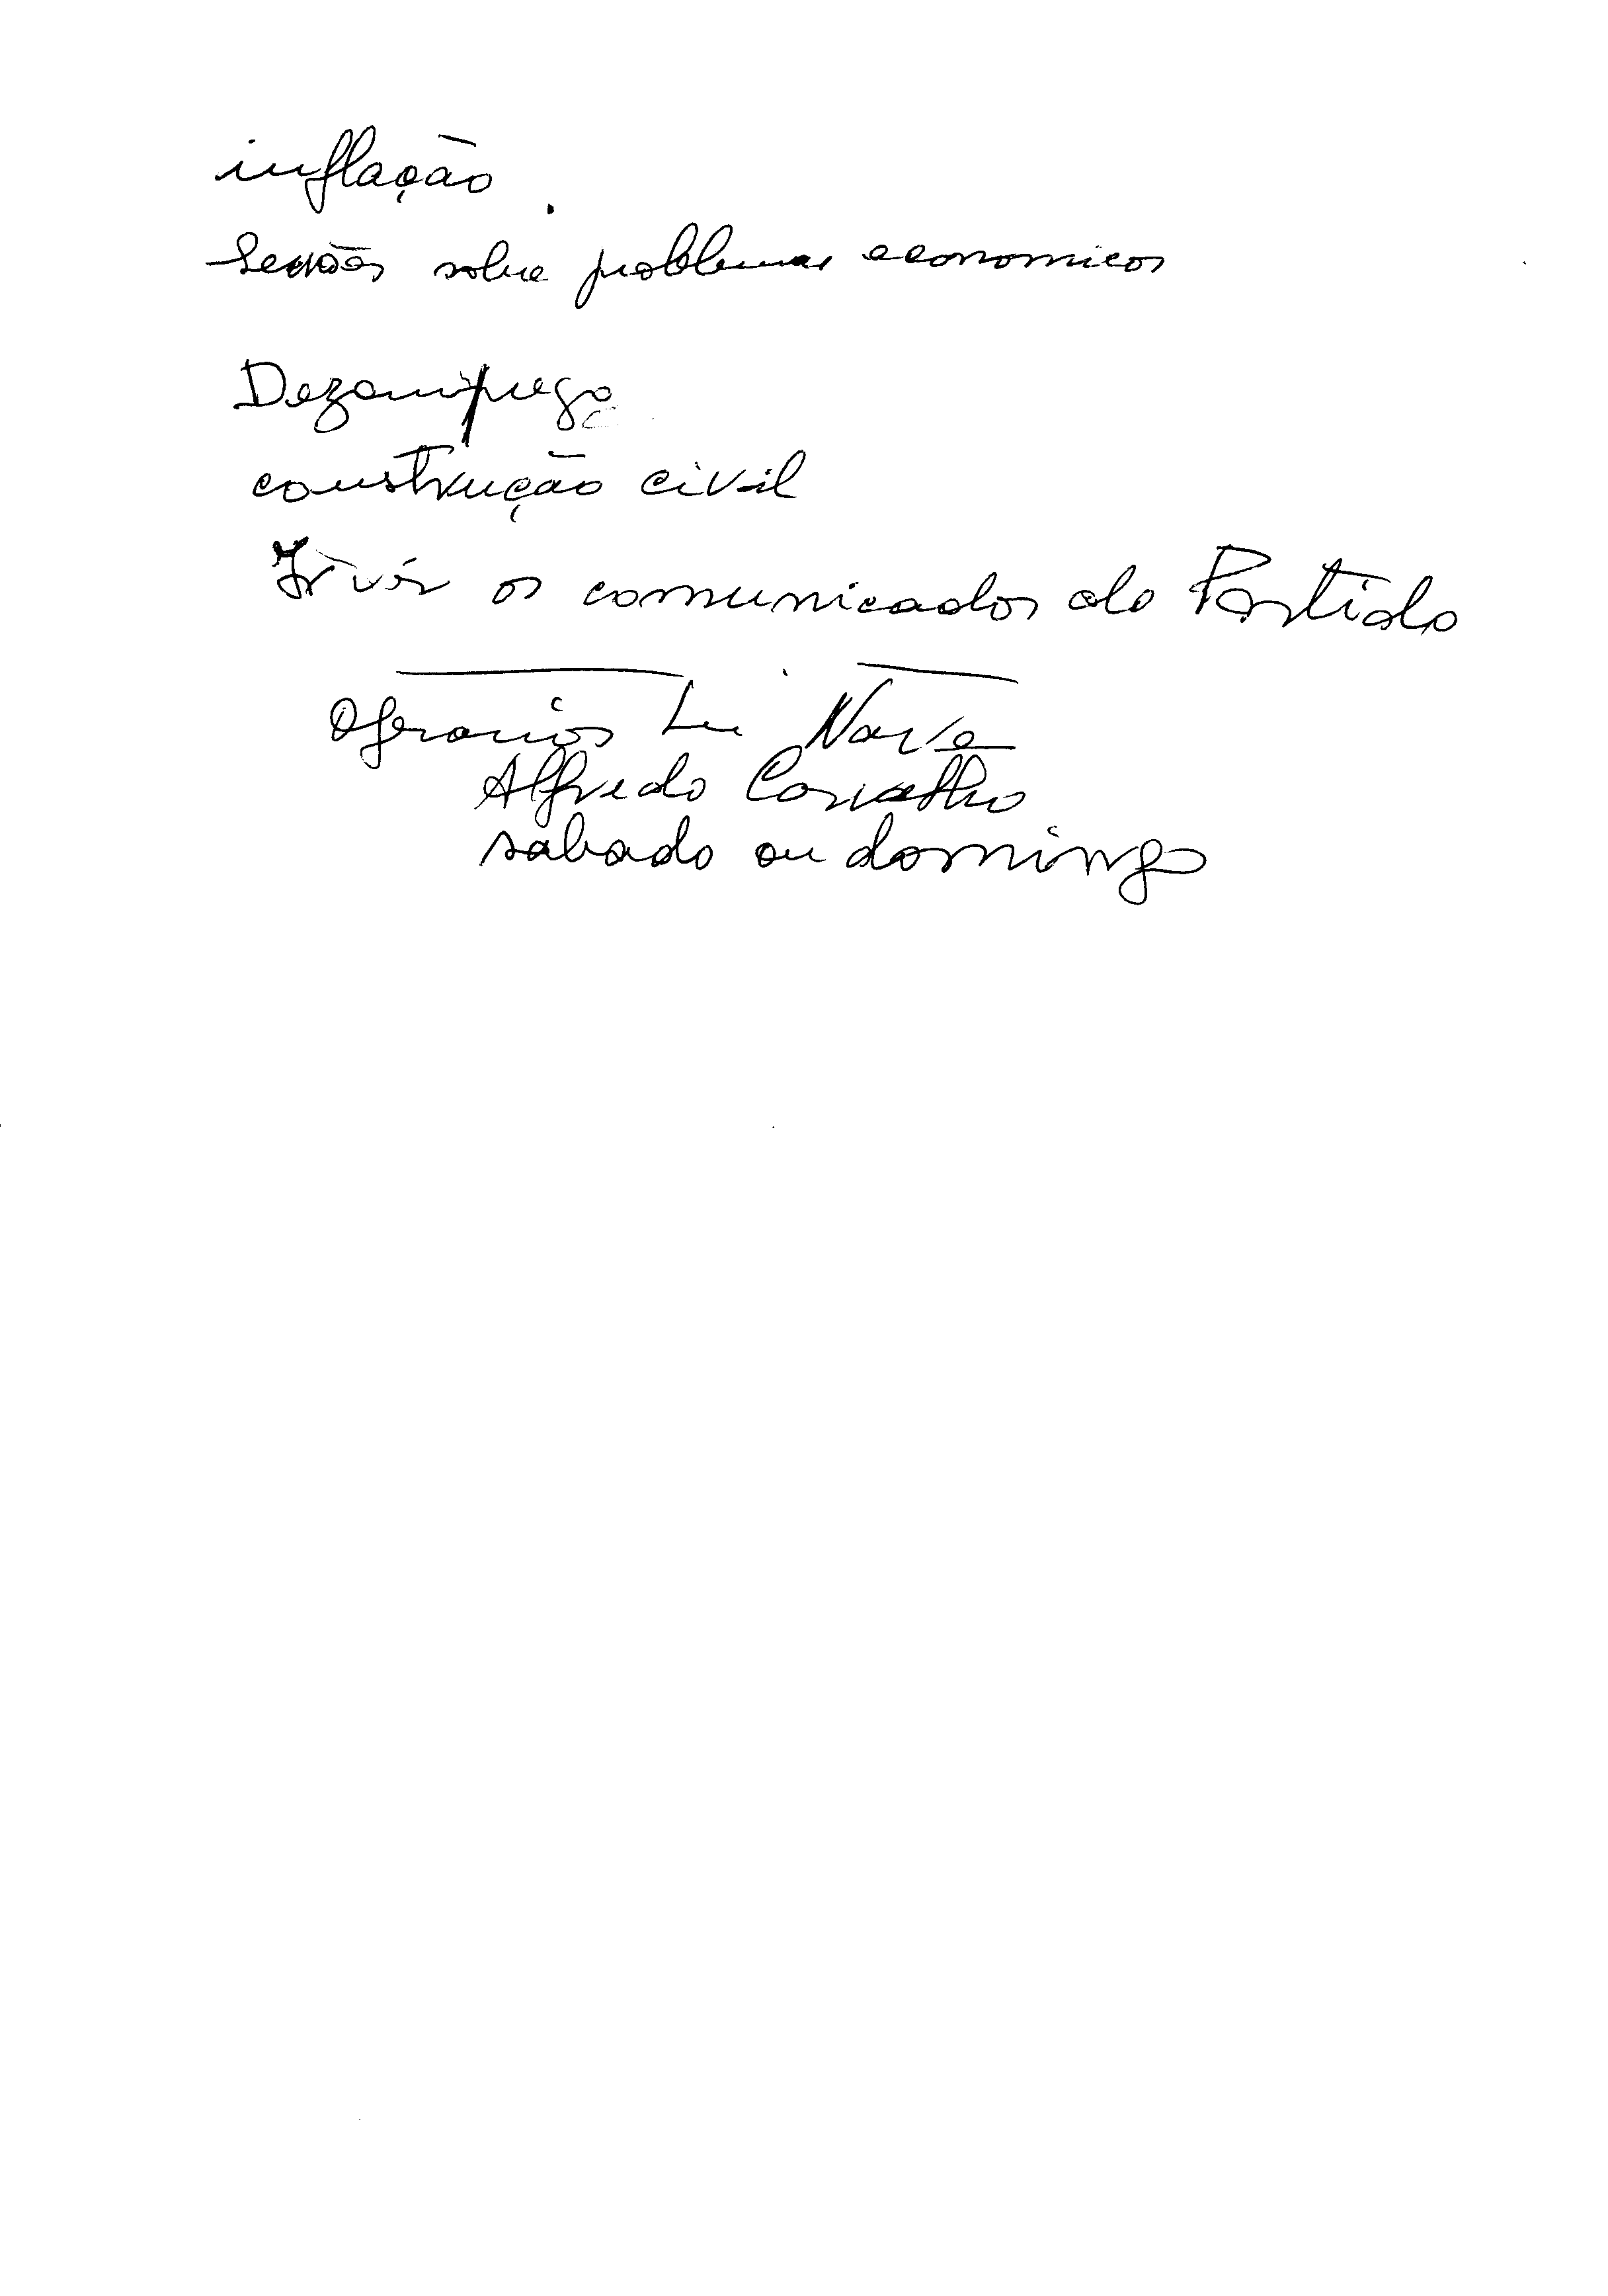 inflação.
Sessões sobre problemas economicos
Dezamprego
construção civil
Ir vêr os comunicados do Partido
Operarios Lu Nave
Alfredo Carvalho
sabado ou domingo